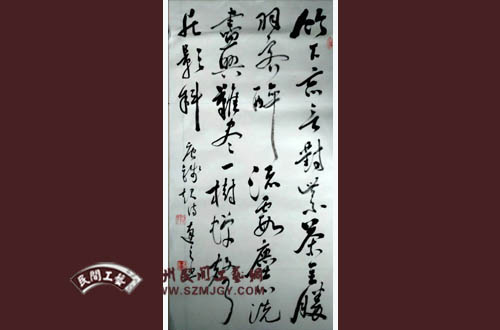 竹下忘言對紫茶全勝
羽客醉流霞塵心洗
盡興難盡一樹蟬聲
片影斜
唐錢起詩
民間工藝
州民间工艺网
WWW.SZMJGY.COM